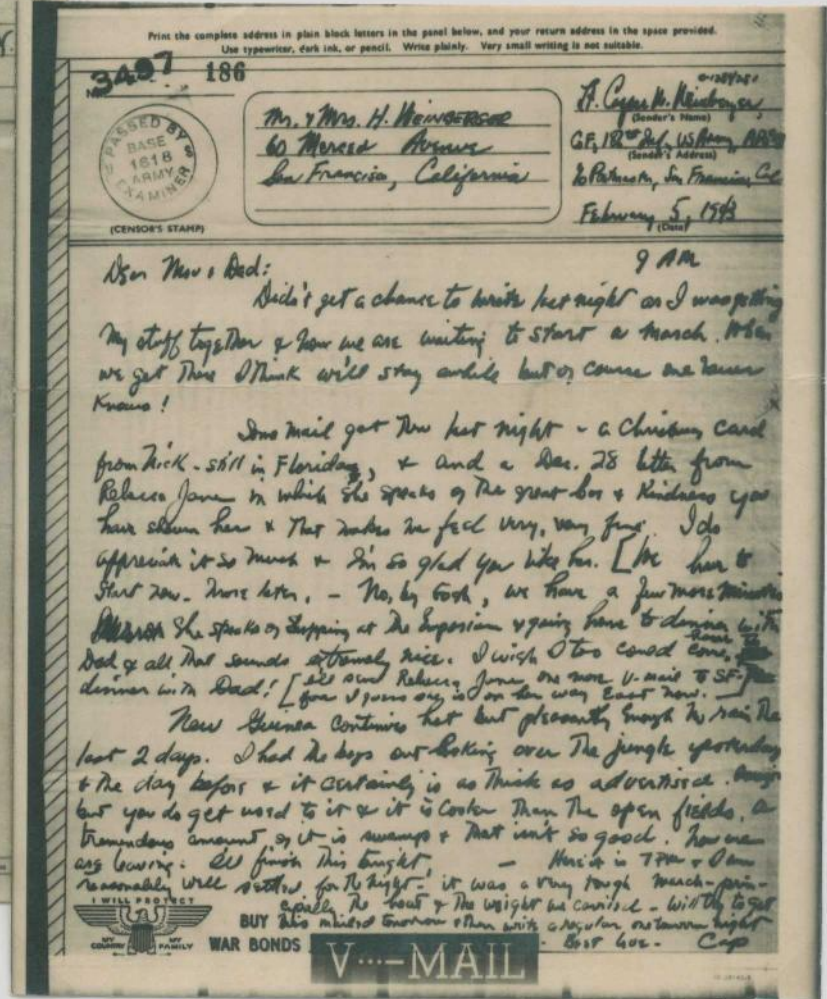 Print the complete address in plain block letters in the panel below, and your return address in the space provided.
Use typewriter, dark ink, or pencil. Write plainly. Very small writing is not suitable.
3497 186
PASSED BY
BASE
1618
ARMY
EXAMINER
(CENSOR'S STAMP)
Mr. & Mrs. H. WEINBERGER
60 Merced Avenue
San Francisco, California
(Sender's Name)
US Army, APO
(Sender's Address)
℅ Postmaster, San Francisco, Cal
February 5, 1943
(Date)
9 AM
Dear Mom & Dad:
Didn't get a chance to write last night as I was getting
my stuff together & now we are waiting to start a march. When
we get there I think we'll stay awhile but of course one never
knows!
Some mail got thru last night - a Christmas card
from Nick - still in Florida, & and a Dec. 28 letter from
Rebecca Jane in which she speaks of the great love & kindness you
have shown her & that makes me feel very, very fine. I do
appreciate it so much & I'm so glad you like her. [We have to
start now. More later. - No, by Gosh, we have a few more minutes
She speaks of shopping at the Emporium & going home to dinner with
Dad & all that sounds extremely nice. I wish I too could come home to
dinner with Dad! [I'll send Rebecca Jane one more V-mail to SF-
for I guess she is on her way East now.
New Guinea continues hot but pleasantly enough no rain the
last 2 days. I had the boys out looking over the jungle yesterday
& the day before & it certainly is as thick as advertised.
but you do get used to it & it is cooler than the open fields. A
tremendous amount of it is swamps & that isn't so good. Now we
are leaving. I'll finish this tonight. - Here it is 7 PM & I am
reasonably well settled for the night - it was a very tough march - prin-
cipally the heat & the weight we carried - will try to get
this mailed tomorrow & then write a regular one tomorrow night
- Best love - Cap
I WILL PROTECT
MY COUNTRY MY FAMILY
BUY
WAR BONDS
V···—MAIL